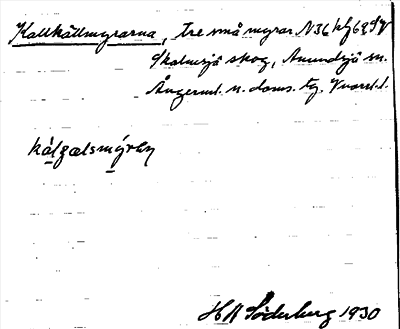 Kallkällmyrarna, tre små myrar N36 kf 69 SV
Skalmsjö skog, Anundsjö sn.
Ångerml. n. doms. tg. Västl. l.
kálgælsmýrɐɳ
H A Söderberg 1930